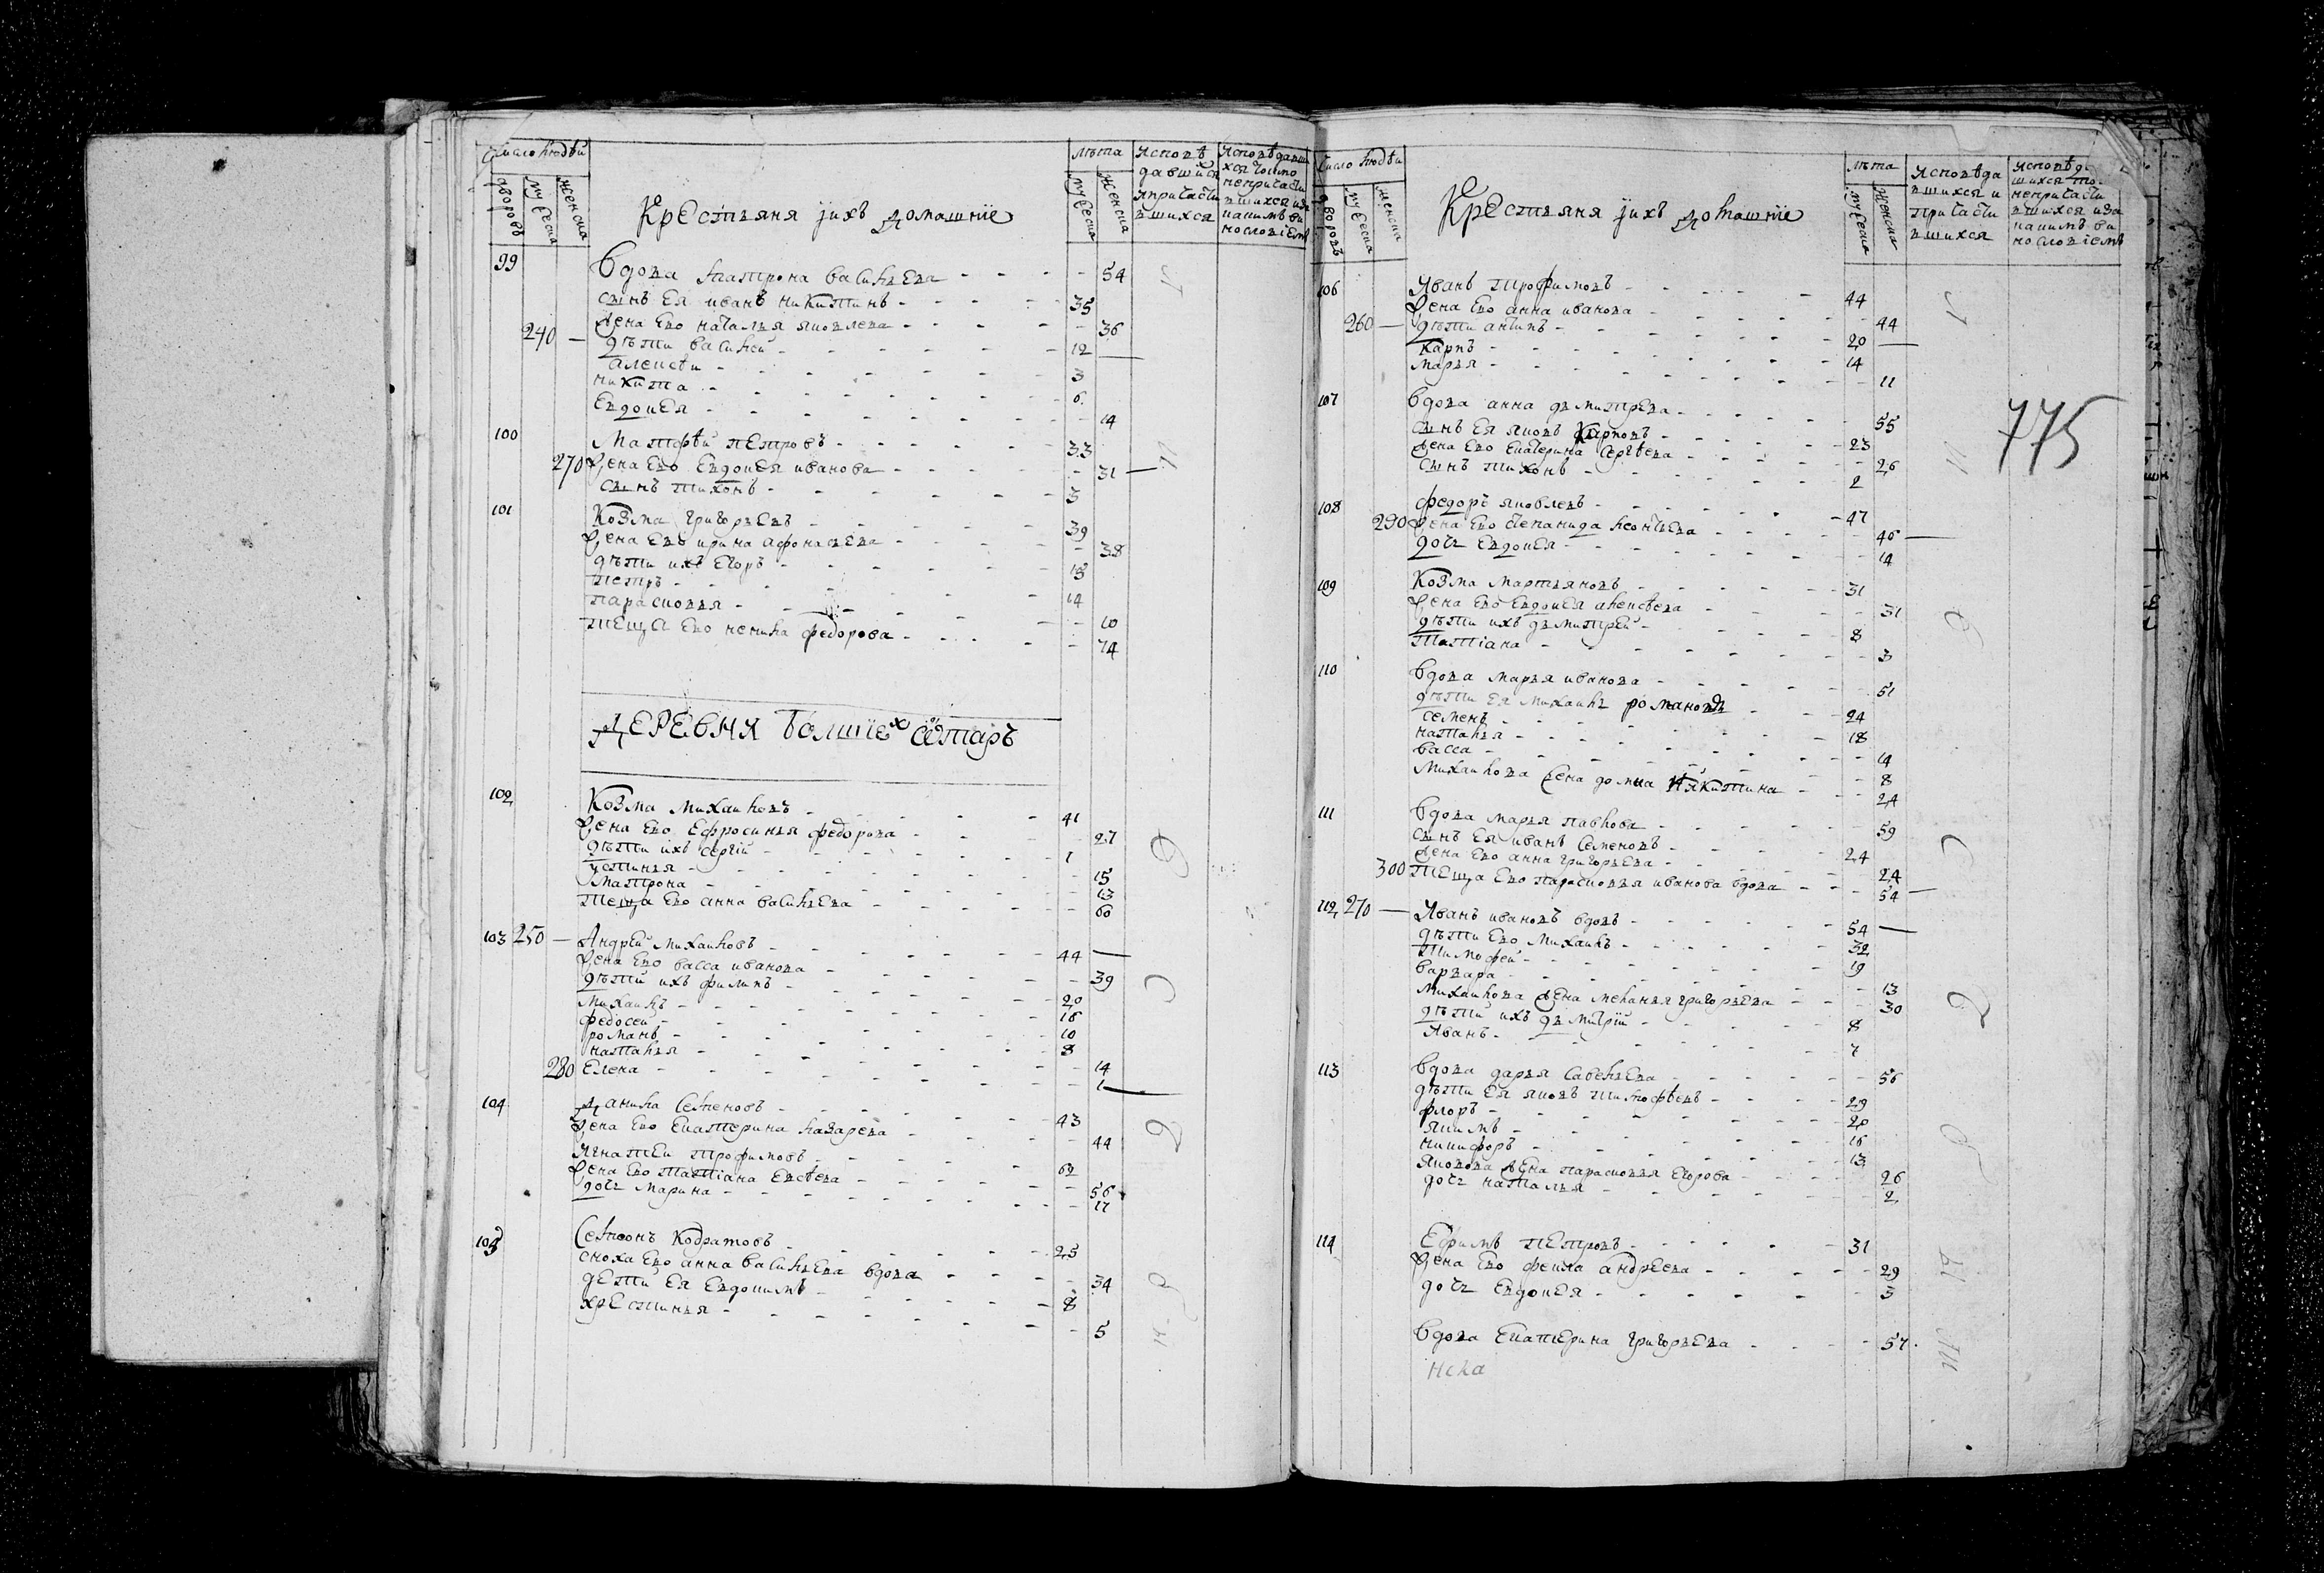 число людѣй
дворовъ
мужеска
женска
Крестьяня ихъ домашние
лѣта
мужеска
женска
исповѣ
давшихся
ипричасти
вшихся
исповѣдавши
хся токмо
непричасти
вшихся
99 вдова матрона васильева 54
сынъ ея иванъ никитинъ 35
жена ево наталья яковлева 36
240 дѣти василей 12
алексѣй 3
никита 6
Евдокея 14
100 Матфѣй петровъ 33
270 жена ево Евдокея иванова 31
сынъ тихонъ 3
101 Козма григорьевъ 39
жена ево ирина афонасьева 38
дѣти ихъ Егоръ 18
петръ 14
парасковья 10
теща ево ненила федорова 74
ДЕРЕВНЯ болшиехъ
102 Козма михаиловъ 41
жена ево Ефросинья федорова 27
дѣти ихъ сергій 1
устинья 15
матрона 13
теща ево анна васильева 60
103 250 Андрей михаиловъ 44
жена ево васса иванова 39
дѣти ихъ филипъ 20
михаилъ 16
федосей 10
романъ 8
наталья 14
280 Елена 1
104 данила семеновъ 43
жена ево Екатерина назарева 44
игнатеи трофимовъ 62
жена ево татіана Евсѣева 56
дочь марина 17
105 семионъ Кодратовъ 25
сноха ево анна васильева вдова 34
дети ея Евдокимъ 8
хрестинья 5
число людѣй
дворовъ
мужеска
женска
Крестьяня ихъ домашние
лѣта
мужеска
женска
исповѣда
вшихся и
причасти
вшихся
непричасти
вшихся
106 иванъ трофимовъ 44
жена ево анна иванова 44
260 дѣти антипъ 20
Карпъ 14
марья 11
107 вдова анна дьмитрева 55
сынъ ея яковъ Карповъ 23
жена ево Екатерина сергѣева 26
сынъ тихонъ 2
775
108 федоръ яковлевъ 47
290 жена ево степанида леонтьева 46
дочь Евдокея 14
109 Козма мартьяновъ 31
жена ево Евдокея алексѣева 31
дѣти ихъ дьмитрей 8
татіана 3
110 вдова марья иванова 51
дѣти ея михаилъ романовъ 24
семенъ 18
наталья 14
васса 8
михаилова жена домна никитина 24
111 вдова марья павлова 59
сынъ ея иванъ семеновъ 24
жена ево анна григорьева 24
300 теща ево парасковья иванова вдова 54
112 270 иванъ ивановъ вдовъ 54
дѣти ево михаилъ 32
тимофей 19
варвара 13
михаилова жена меланья григорьева 30
дѣти ихъ дьмитрій 8
иванъ 7
113 вдова дарья савельева 56
дѣти ея яковъ тимофѣевъ 29
флоръ 20
якимъ 16
никифоръ 13
яковова жена парасковья Егорова 26
дочь наталья 2
114 Ефимъ петровъ 31
жена ево фекла андреева 29
дочь Евдокея 3
вдова Екатерина григорьева 57